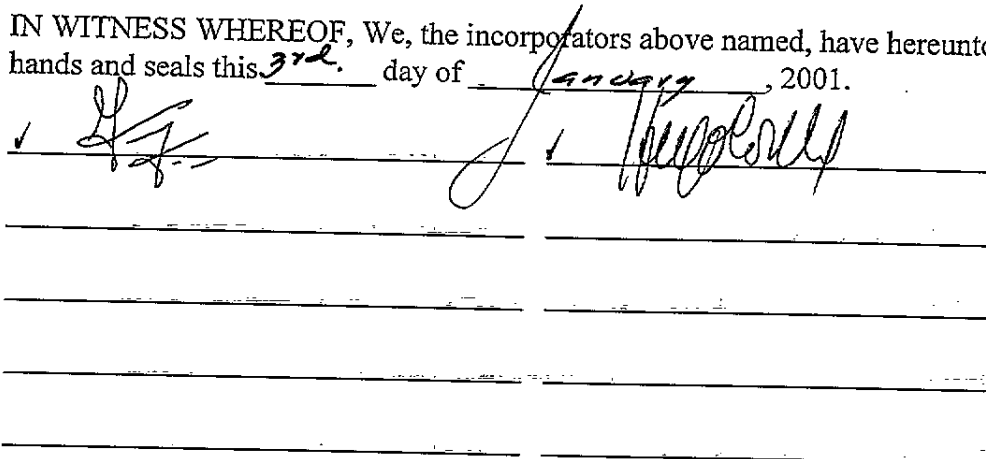 IN WITNESS WHEREOF, We, the incorporators above named, have hereunto
hands and seals this 3rd. day of January, 2001.